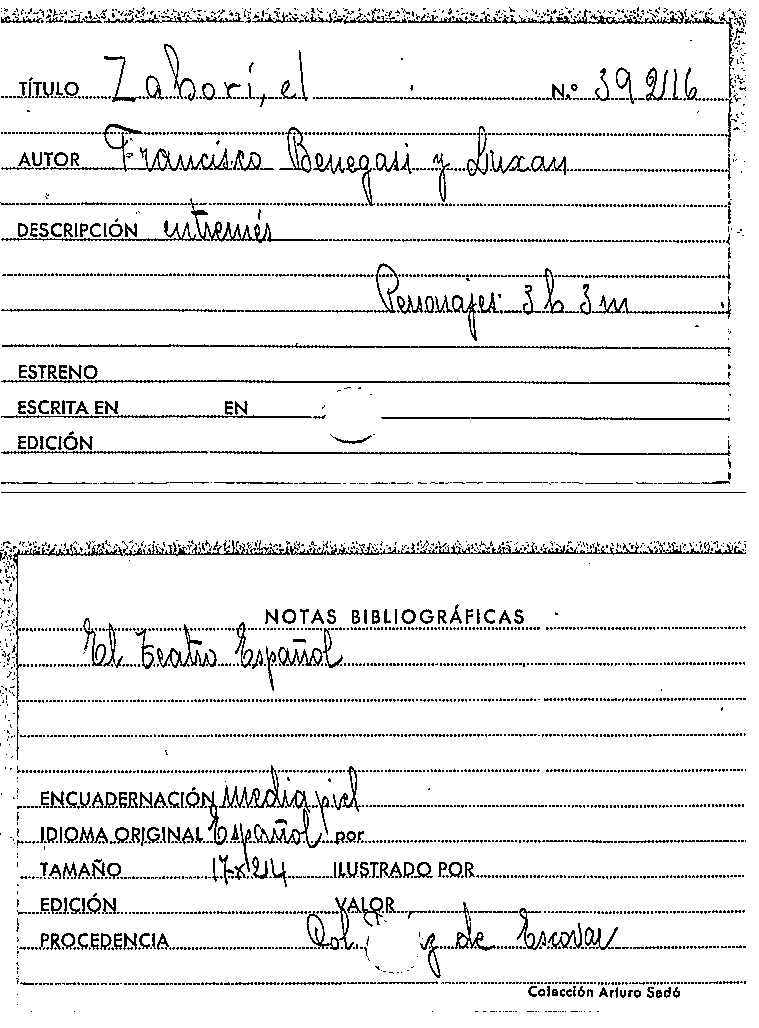 TÍTULO Zahorí, el N.º 39216
AUTOR Francisco Benegasi y Luxan
DESCRIPCIÓN entremés
Personajes: 3 h 3 m
ESTRENO
ESCRITA EN EN
EDICIÓN
NOTAS BIBLIOGRÁFICAS
El Teatro Español
ENCUADERNACIÓN media piel
IDIOMA ORIGINAL Español por
TAMAÑO 17x214 ILUSTRADO POR
EDICIÓN VALOR
PROCEDENCIA Col. de Escovar
Colección Arturo Sedó